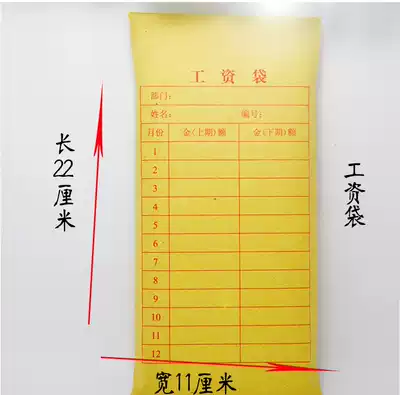 工资袋
部门:
姓名: 编号:
月份 金(上期)额 金(下期)额
1
2
3
4
5
6
7
8
9
10
11
12
长22厘米
宽11厘米
工资袋